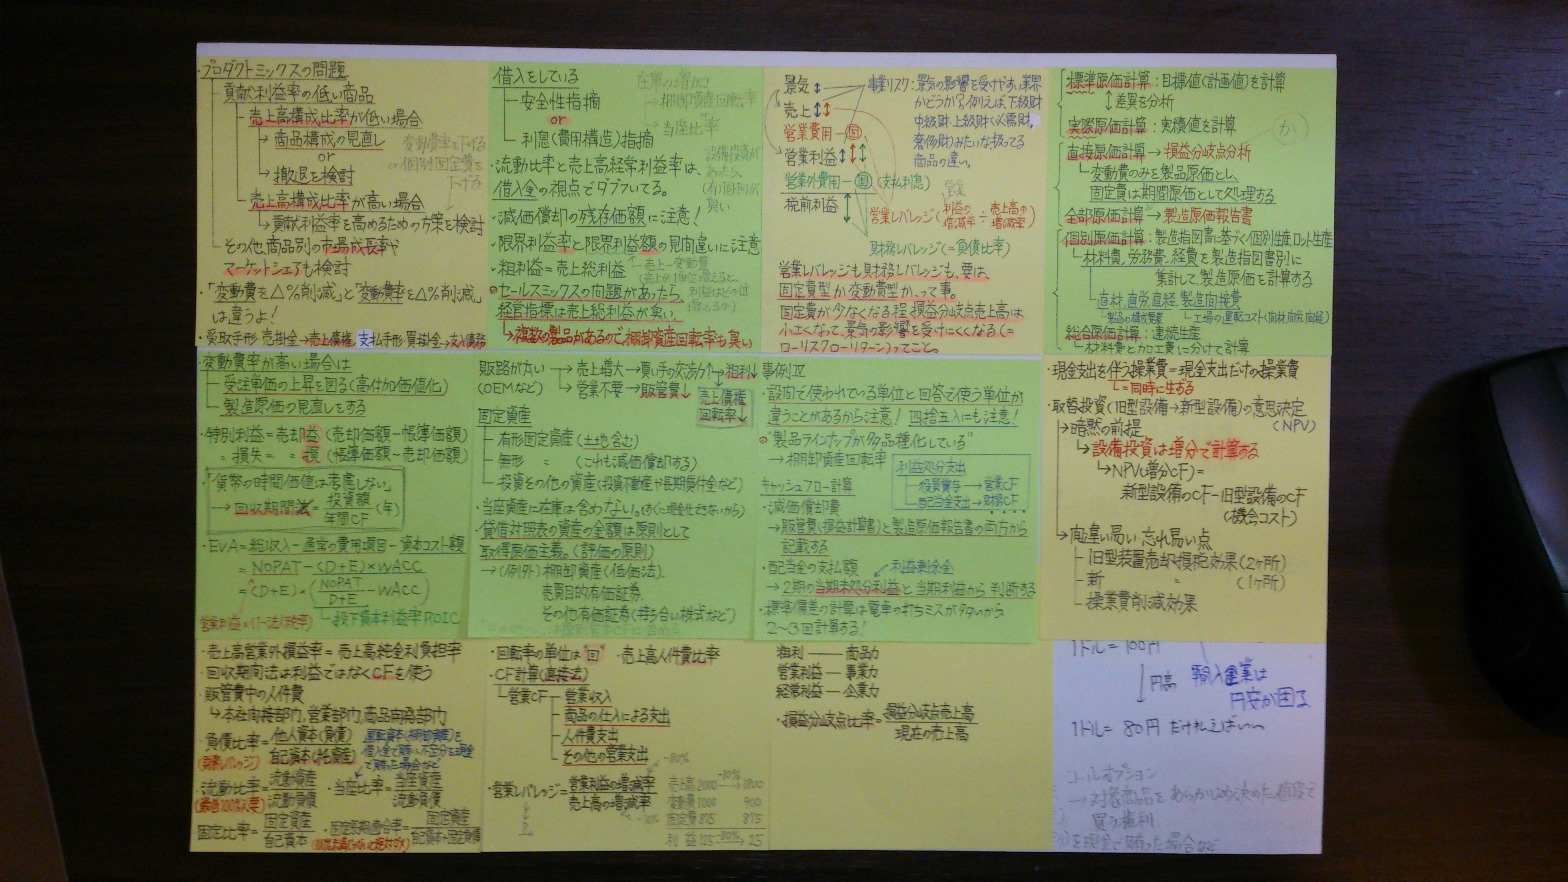 ・プロダクトミックスの問題
貢献利益率の低い商品
売上高構成比率が低い場合
→商品構成の見直し
or
→撤退を検討
変動費率を下げる
or個別固定費を
下げる
売上高構成比率が高い場合
→貢献利益率を高めるための方策を検討
その他商品別の市場成長率や
マーケットシェアも検討
・「変動費を△%削減」と「変動費率を△%削減」
は違うよ!
・受取手形・売掛金→売上債権、支払手形・買掛金→支払債務
借入をしている
安全性指摘
or
利息(費用構造)指摘
在庫の増加に
→棚卸資産回転率
→当座比率
・流動比率と売上高経常利益率は、
借入金の視点でダブっている。
設備投資が
あったら、
(有)固回が
臭い
・減価償却の残存価額に注意!
・限界利益率と限界利益額の見間違いに注意
・粗利益=売上総利益
売上-変動費
・セールスミックスの問題があったら、
経営指標は売上総利益が臭い。
→複数の製品があるので棚卸資産回転率も臭い
景気
売上
営業費用―固
営業利益
営業外費用―固(支払利息)
税前利益
事業リスク:景気の影響を受けやすい業界
かどうか?例えば、下級財
中級財、上級財(必需財、
奢侈財)みたいな扱ってる
商品の違い。
営業レバレッジ(利益の増減率÷売上高の増減率)
財務レバレッジ(=負債比率)
営業レバレッジも財務レバレッジも、要は、
固定費型か変動費型かって事。
固定費が少なくなる程、損益分岐点売上高は
小さくなって、景気の影響を受けにくくなる(=
ローリスクローリターン)ってこと。
標準原価計算:目標値(計画値)を計算
差異を分析
実際原価計算:実績値を計算
直接原価計算→損益分岐点分析
変動費のみを製品原価とし、
固定費は期間原価として処理する
全部原価計算→製造原価報告書
個別原価計算:製造指図書に基づく個別生産ロット生産
材料費、労務費、経費を製造指図書別に
集計して、製造原価を計算する
直材 直労 直経 製造間接費
製品の構成要素 工場の運転コスト(間材,間労,間経)
総合原価計算:連続生産
材料費と加工費に分けて計算
変動費率が高い場合は
受注単価の上昇を図る(高付加価値化)
製造原価の見直しをする
・特別利益=売却益(売却価額-帳簿価額)
〃 損失=〃 損(帳簿価額-売却価額)
「貨幣の時間価値は考慮しない」
→回収期間法=投資額/年間CF(年)
・EVA=総収入-通常の費用項目-資本コスト額
=NOPAT-(D+E)×WACC
=(D+E)×(NOPAT/D+E-WACC)
営業利益×(1-法人税率)
投下資本利益率ROIC
販路がない→売上増大→買い手の交渉力↑→粗利↓
(OEMなど)→営業不要→販管費↓
売上債権
回転率↓
固定資産
有形固定資産(土地含む)
無形 〃 (これも減価償却する)
投資その他の資産(投資不動産や長期貸付金など)
・当座資産に在庫は含めない。(すぐに現金化できないから)
・貸借対照表の資産の金額は原則として
取得原価主義。(評価の原則)
→(例外)棚卸資産(低価法)、
売買目的有価証券
その他有価証券(持ち合い株式など)
事例Ⅳ
・設問で使われている単位と回答で使う単位が
違うことがあるから注意!四捨五入にも注意!
"製品ラインナップが多品種化している"
→棚卸資産回転率
利益処分支出
役員賞与→営業CF
配当金支出→財務CF
キャッシュフロー計算
・減価償却費
→販管費(損益計算書)と製造原価報告書の両方から
記載する
・配当金の支払額
利益剰余金
→2期の当期未処分利益と当期利益から判断する
・標準偏差の計算は電卓の打ちミスが多いから
2〜3回計算する!
・現金支出を伴う操業費=現金支出だけの操業費
=同時に生ずる
・取替投資(旧型設備→新型設備)の意思決定
(NPV)
→暗黙の前提
→設備投資は増分で計算する
→NPV(増分CF)=
新型設備のCF-旧型設備のCF
(機会コスト)
→定量高い、忘れ易い点
旧型装置売却や損税効果(2ヶ所)
新 〃 (1ヶ所)
操業費削減効果
・売上高営業外損益率=売上高純金利負担率
・回収期間法は利益ではなくCFを使う
・販管費中の人件費
→本社間接部門、営業部門、商品開発部門
・負債比率=他人資本(負債)/自己資本(純資産)
(財務レバレッジ)
・流動比率=流動資産/流動負債 ・当座比率=当座資産/流動負債
・固定比率=固定資産/自己資本 ・固定長期適合率=固定資産/自己資本+固定負債
・回転率の単位は"回" ・売上高人件費比率
・CF計算(直接法)
営業CF 営業収入
商品の仕入による支出
人件費支出
その他の営業支出
・営業レバレッジ=営業利益の増減率/売上高の増減率
売上高 2000 -10%→ 1800
変動費 1000 900
固定費 875 875
利益 125 -80%→ 25
粗利―商品力
営業利益―事業力
経常利益―企業力
・損益分岐点比率=損益分岐点売上高/現在の売上高
1ドル=100円
↓円高
輸入企業は
円安が困る
1ドル=80円 だけ払えばいい
コールオプション
→対象商品をあらかじめ決めた値段で
買う権利